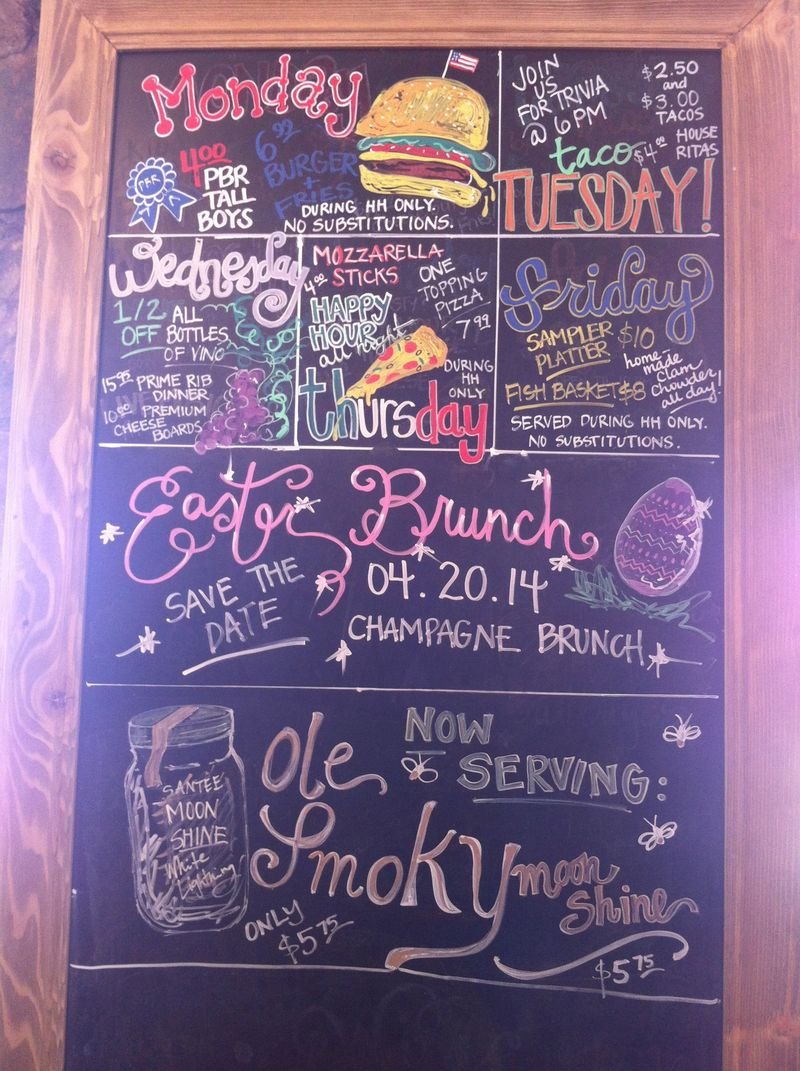 Monday
PBR
4.00
PBR
TALL
BOYS
6.99
BURGER
+
FRIES
DURING HH ONLY.
NO SUBSTITUTIONS.
JOIN
US
FOR TRIVIA
@ 6 PM
$2.50
and
$3.00
TACOS
$4.00 HOUSE
RITAS
taco
TUESDAY!
Wednesday
1/2 ALL
OFF BOTTLES
OF VINO
15.95 PRIME RIB
DINNER
10.00 PREMIUM
CHEESE
BOARDS
MOZZARELLA
4.00 STICKS
HAPPY
HOUR
all night
ONE
TOPPING
PIZZA
7.99
DURING
HH
ONLY
thursday
Friday
SAMPLER $10
PLATTER
FISH BASKET $8
home
made
clam
chowder
all day!
SERVED DURING HH ONLY.
NO SUBSTITUTIONS.
Easter Brunch
SAVE THE
DATE
04.20.14
CHAMPAGNE BRUNCH
SANTEE
MOON
SHINE
White
Lightning
ONLY
$5.75
NOW
SERVING:
Ole
Smoky moon
shine
$5.75